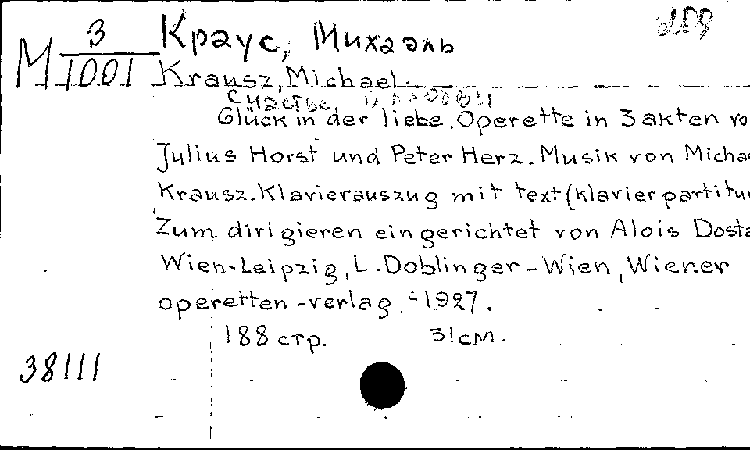 М 3/1001 Краус, Михаэль
Krausz, Michael.
Счастье в любви
Glück in der liebe. Operette in 3 akten vo
Julius Horst und Peter Herz. Musik von Micha
Krausz. Klavierauszug mit text (klavierpartitu
Zum dirigieren eingerichtet von Alois Dosta
Wien-Leipzig, L. Doblinger - Wien, Wiener
operetten-verlag, c1927.
188 стр. 31 см.
38111